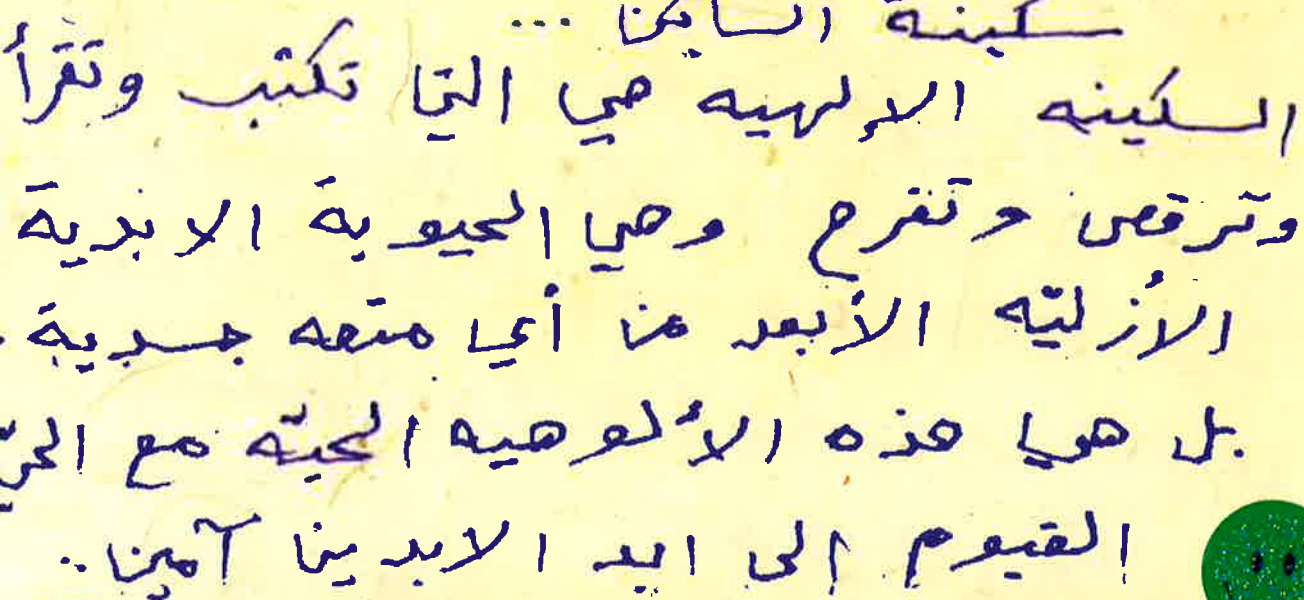 سكينة الساكن ...
السكينه الإلهيه هي التي تكتب وتقرأ
وترقص وتفرح وهي الحيوية الابدية
الأزليّه الأبعد من أي متعه جسدية .
بل هي هذه الألوهيه الحيّه مع الحيّ
القيوم إلى ابد الابدين آمين ..